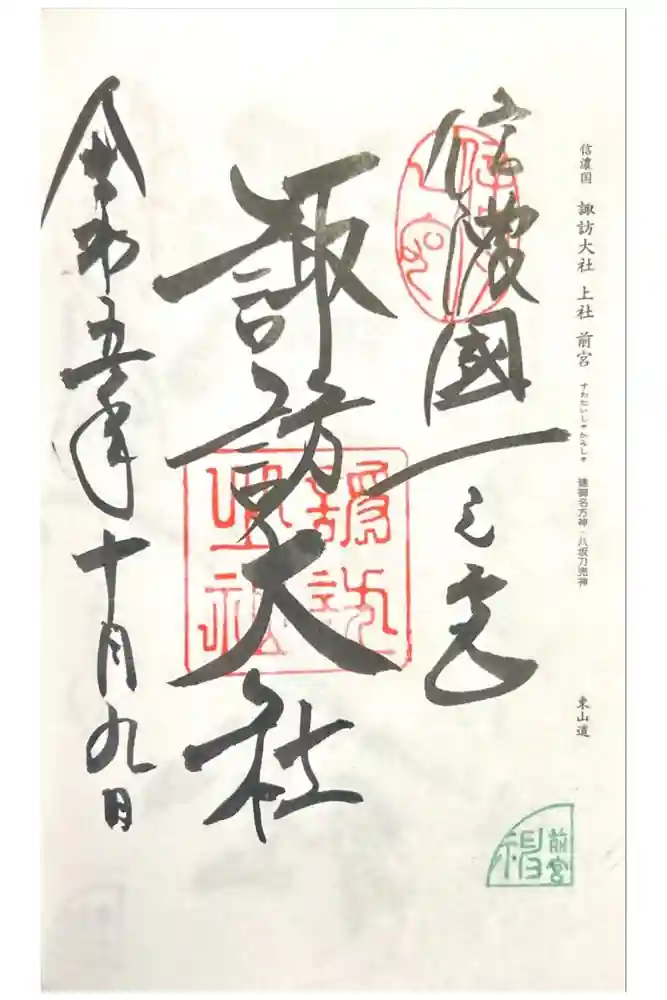 信濃国 諏訪大社 上社 前宮 すわたいしゃかみしゃ 建御名方神・八坂刀売神 東山道
信濃國一之宮
諏訪大社
令和五年十月九日
前宮